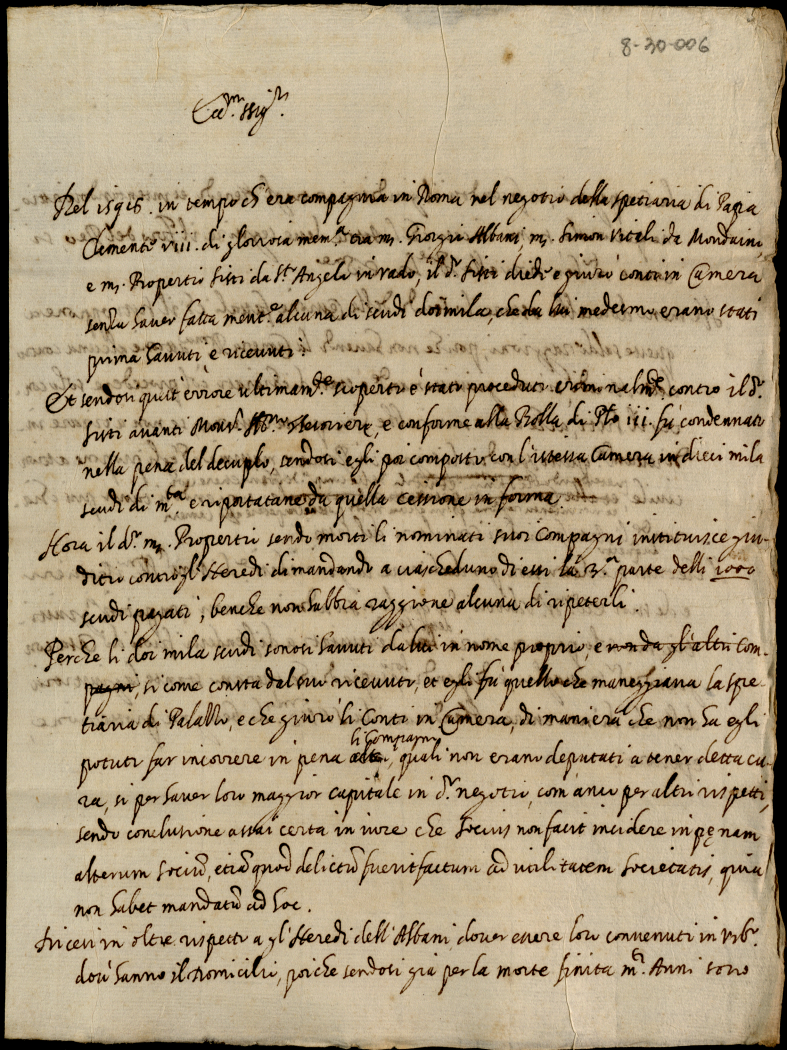 8-30-006
Ecc.mi SSig.ri
Nel 1596. in tempo ch'era compagnia in Roma nel negotio della spetiaria di Papa
Clemente viii. di gloriosa mem.a tra m. Giorgio Albani m. Simon Vitali da Mondaini
e m. Propertio Sisti da S.t Angelo in vado, il d.o Sisti diede e giurò conti in Camera
senza haver fatta ment.e alcuna di scudi doi mila, che da lui medesmo erano stati
prima havuti e ricevuti.
Et sendosi quest'errore ultimam.te scoperto è stato proceduto criminalm.te contro il d.o
Sisti avanti Mons.r , e conforme alla Bolla di Pio iii. fù condennato
nella pena del decuplo, sendosi egli poi composto con l'istessa Camera in dieci mila
scudi di m.ta e riportatane da quella cessione in forma.
Hora il d.o m. Propertio sendo morti li nominati suoi compagni instituisce giu-
ditio contro gl'Heredi dimandando a ciascheduno di essi la 3.a parte delli 1000
scudi pagati, benche non habbia raggione alcuna di ripeterli.
Perche li doi mila scudi sonosi havuti da lui in nome proprio, e non da gl'altri com-
pagni, si come consta dal suo ricevuto, et egli fù quello che maneggiava la spe-
tiaria di Palazzo, e che giurò li Conti in Camera, di maniera che non ha egli
potuto far incorrere in pena li Compagni, quali non erano deputati a tener detta cu-
ra, si per haver loro maggior capitale in d.o negotio, com'anco per altri rispetti,
sendo conclusione assai certa in iure che Socius non facit incidere in pęnam
alterum Sociũ, etiã quod delictũ fuerit factum ad utilitatem Societatis, quia
non habet mandatũ ad hoc.
Dicesi in oltre rispetto a gl'Heredi dell'Albani dover essere loro convenuti in Urb.o
dove hanno il Domicilio, poiche sendosi già per la morte finita m.ti Anni sono